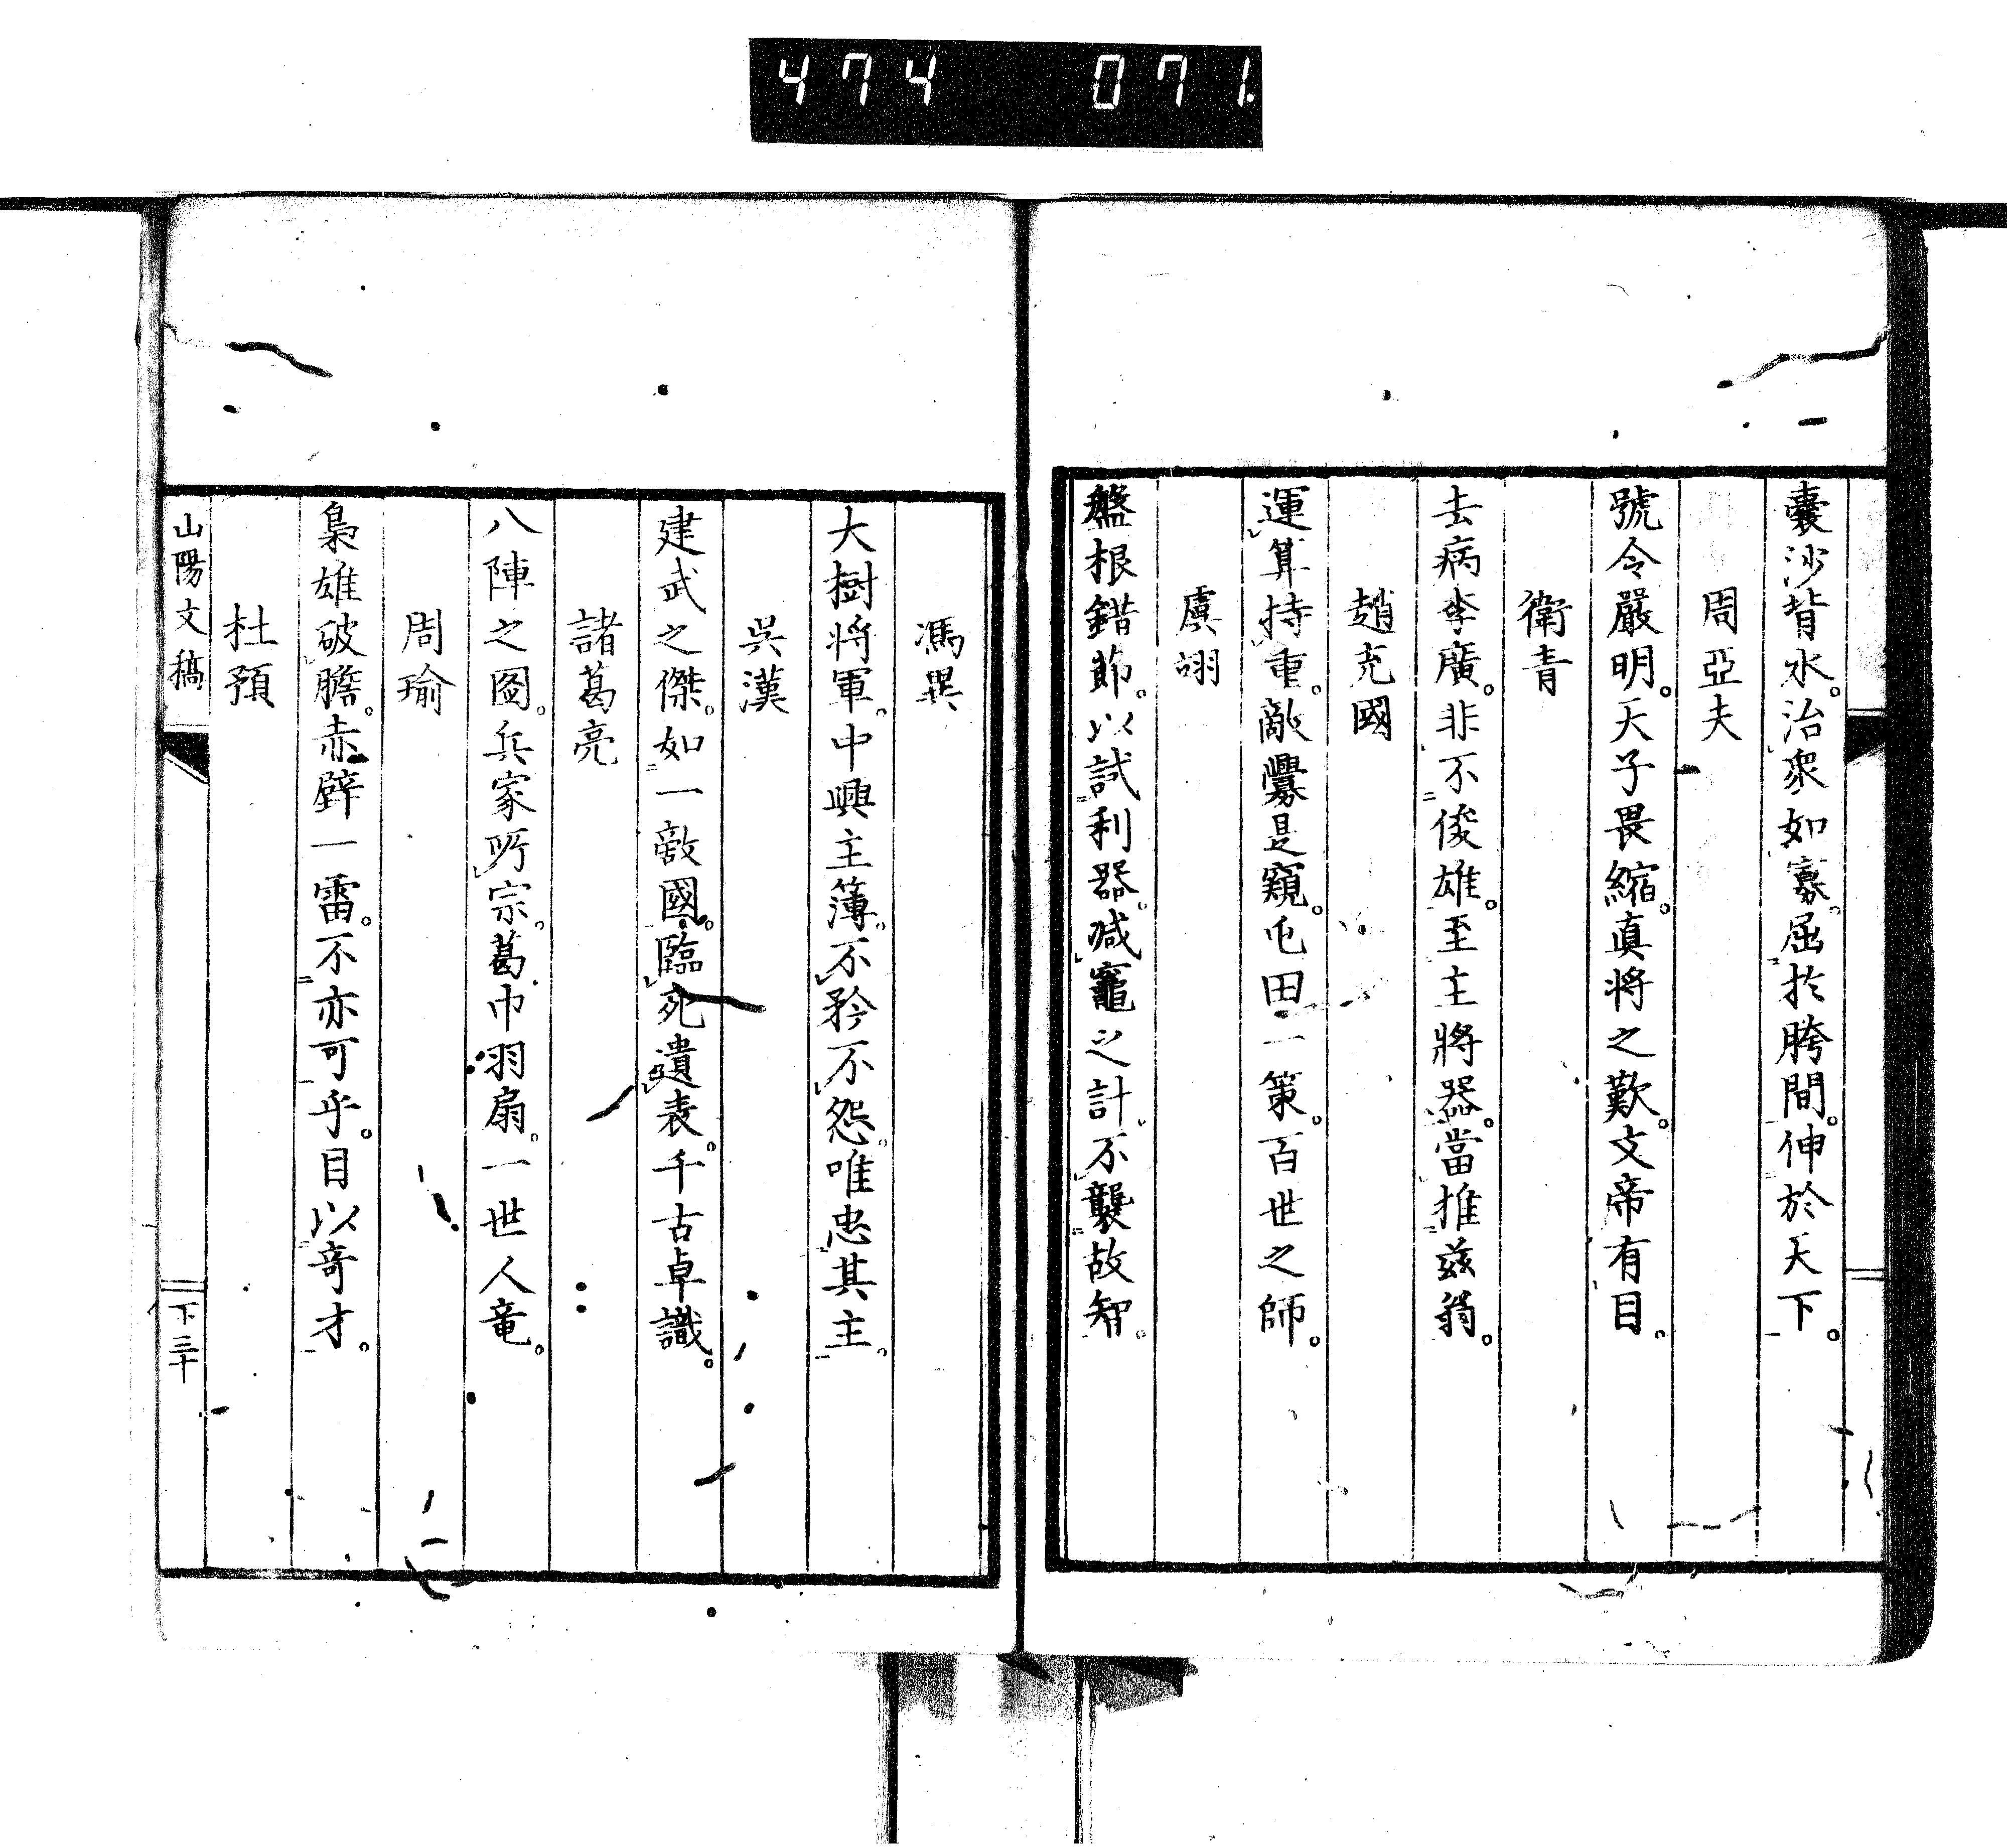 474 071.
囊沙背水。治衆如寡。屈於胯間。伸於天下。
周亞夫
號令嚴明。天子畏縮。眞将之歎。文帝有目。
衛青
去病李廣。非不俊雄。至主將器。當推兹翁。
趙充國
運算持重。敵釁是窺。屯田一策。百世之師。
虞詡
盤根錯節。以試利器。減竈之計。不襲故智。
馮異
大樹将軍。中興主簿。不矜不怨。唯忠其主。
吳漢
建武之傑。如一敵國。臨死遺表。千古卓識。
諸葛亮
八陣之图。兵家所宗。葛巾羽扇。一世人竜。
周瑜
梟雄破膽。赤壁一雷。不亦可乎。目以奇才。
杜預
山陽文稿
下三十